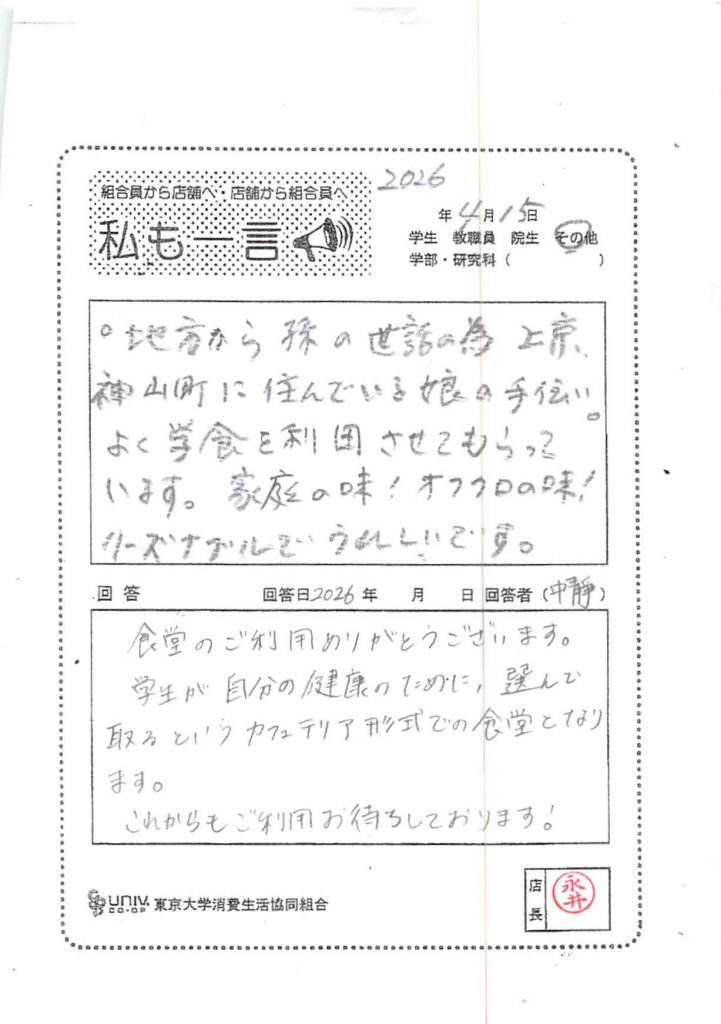 組合員から店舗へ・店舗から組合員へ
私も一言
2026
年4月15日
学生 教職員 院生 その他
学部・研究科( )
○地方から孫の世話の為上京、
神山町に住んでいる娘の手伝い。
よく学食を利用させてもらって
います。家庭の味!オフクロの味!
リーズナブルでうれしいです。
回答 回答日2026年 月 日 回答者(中靜)
食堂のご利用ありがとうございます。
学生が自分の健康のために、選んで
取るというカフェテリア形式での食堂となり
ます。
これからもご利用お待ちしております!
UNIV.
CO-OP
東京大学消費生活協同組合
店長
永井